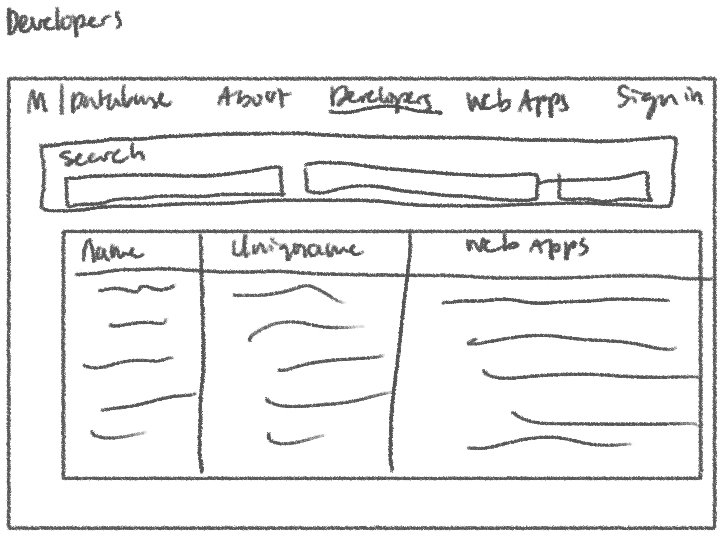 Developers
M | Database About Developers Web Apps Sign in
search
Name Uniqname Web Apps